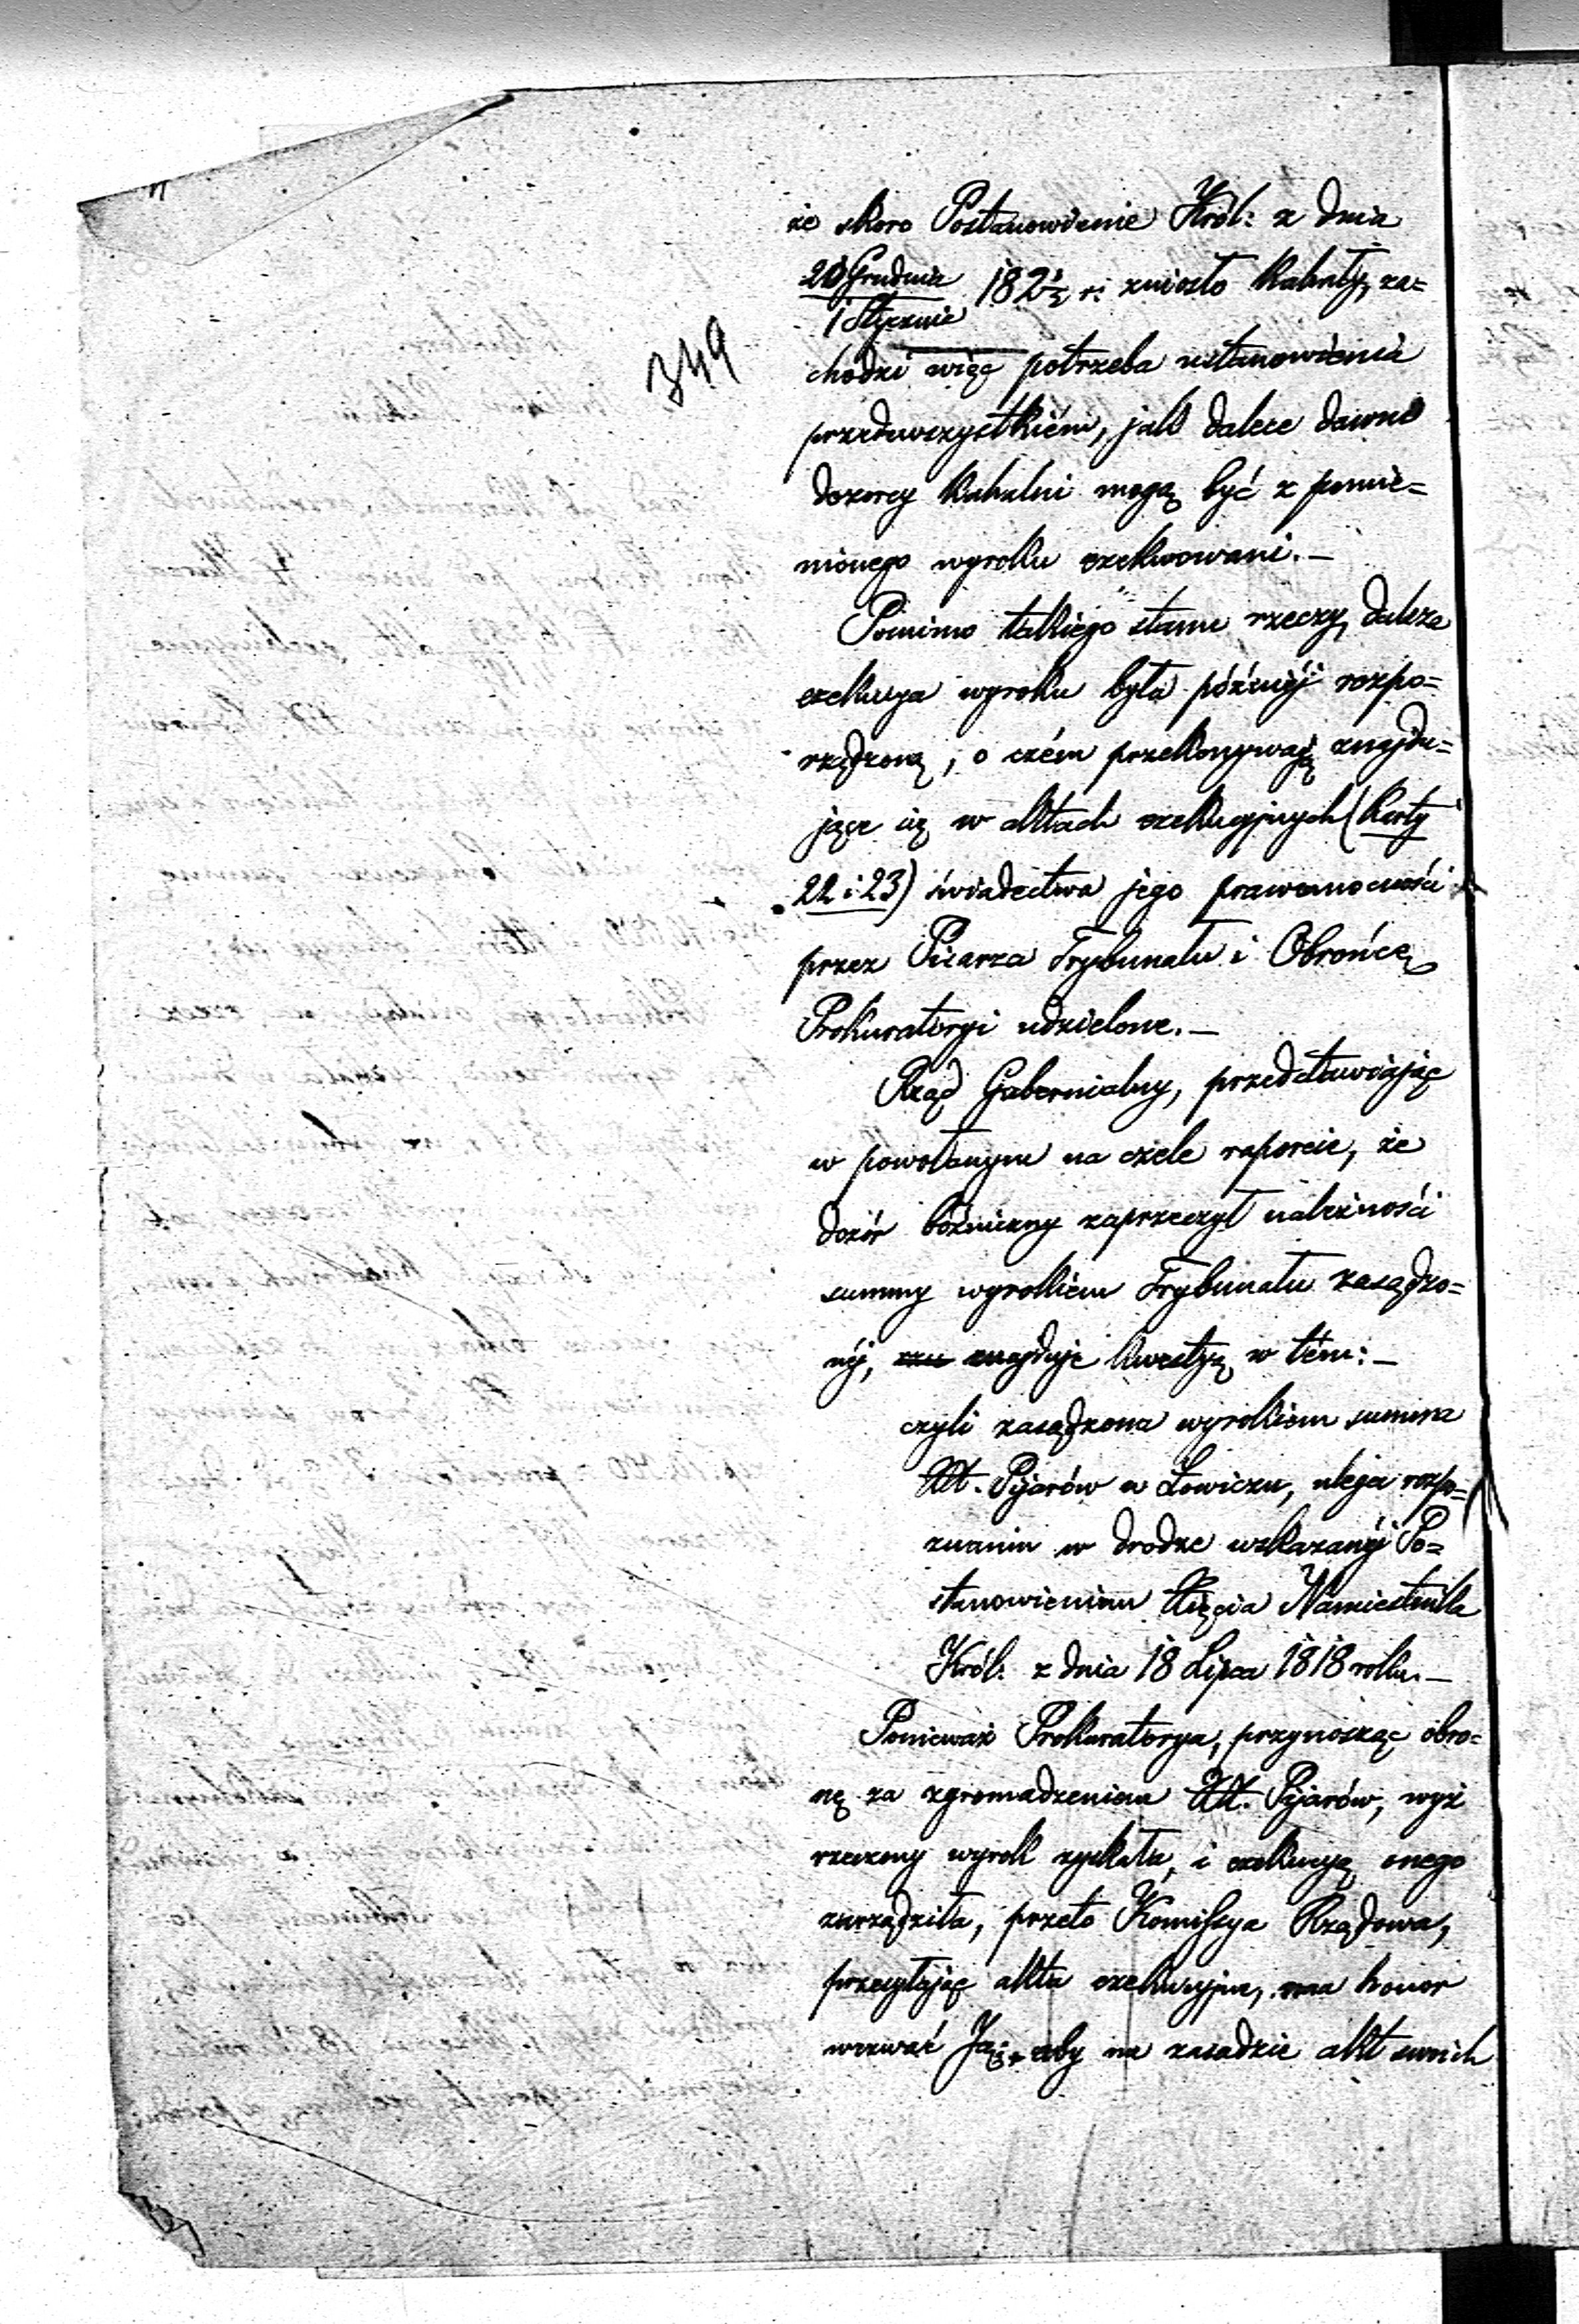 349
że skoro Postanowienie Król: z dnia
20 Grudnia / 1 Stycznia 182 1/2 r: zniosło Kahały, za=
chodzi więc potrzeba ustanowienia
przedewszystkiém, jak dalece dawni
dozorcy Kahalni mogą być z pomie=
nionego wyroku exekwowani.—
Pomimo takiego stanu rzeczy, dalsza
exekucya wyroku była późniéj rozpo=
rządzoną, o czém przekonywają znajdu=
jące się w aktach exekucyjnych (Karty
22 i 23) świadectwa jego prawomocności
przez Pisarza Trybunału i Obrońcę
Prokuratoryi udzielone.—
Rząd Gubernialny, przedstawiając
w powołanym na czele raporcie, że
dozór bóżniczny zaprzeczył należności
summy wyrokiem Trybunału zasądzo=
néj, znajduje kwestyą w tém:—
czyli zasądzona wyrokiem summa
XX. Pijarów w Łowiczu, ulega rozpo=
znaniu w drodze wskazanéj Po=
stanowieniem Xięcia Namiestnika
Król. z dnia 18 Lipca 1818 roku.—
Ponieważ Prokuratorya, przynosząc obro=
nę za zgromadzeniem XX. Pijarów, wyż
rzeczony wyrok zyskała, i exekucyą onego
zarządziła, przeto Kommissya Rządowa,
przesyłając akta exekucyjne, ma honor
wezwać Ją, aby na zasadzie akt swoich